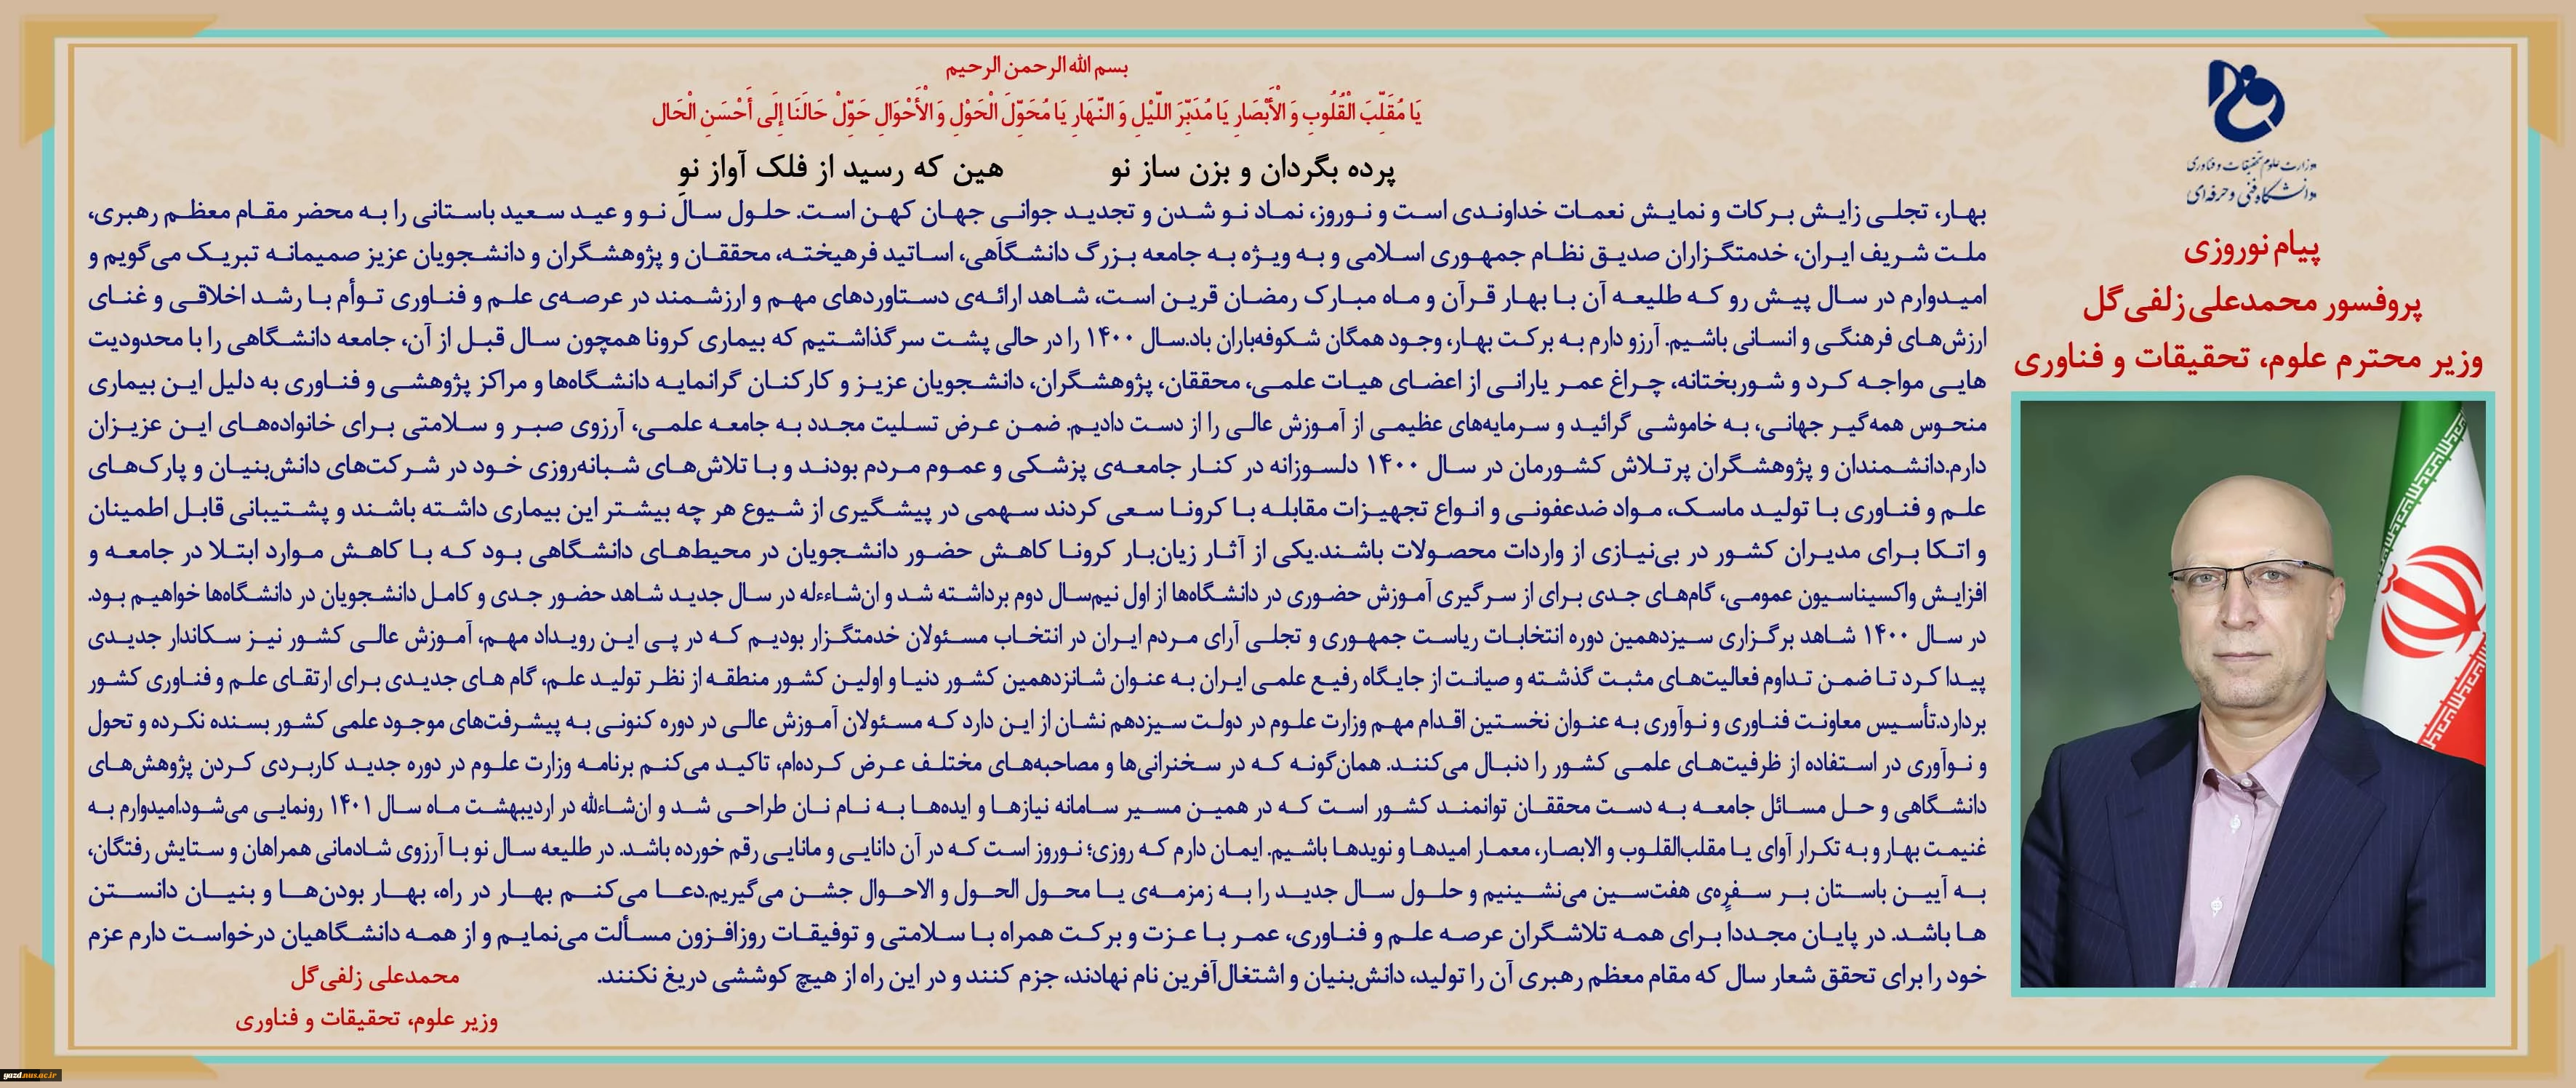 بسم الله الرحمن الرحیم
یَا مُقَلِّبَ الْقُلُوبِ وَ الْأَبْصَارِ یَا مُدَبِّرَ اللَّیْلِ وَ النَّهَارِ یَا مُحَوِّلَ الْحَوْلِ وَ الْأَحْوَالِ حَوِّلْ حَالَنَا إِلَی أَحْسَنِ الْحَال
پرده بگردان و بزن ساز نو هین که رسید از فلک آواز نو
بهار، تجلی زایش برکات و نمایش نعمات خداوندی است و نوروز، نماد نو شدن و تجدید جوانی جهان کهن است. حلول سال نو و عید سعید باستانی را به محضر مقام معظم رهبری،
ملت شریف ایران، خدمتگزاران صدیق نظام جمهوری اسلامی و به ویژه به جامعه بزرگ دانشگاهی، اساتید فرهیخته، محققان و پژوهشگران و دانشجویان عزیز صمیمانه تبریک می‌گویم و
امیدوارم در سال پیش رو که طلیعه آن با بهار قرآن و ماه مبارک رمضان قرین است، شاهد ارائه‌ی دستاوردهای مهم و ارزشمند در عرصه‌ی علم و فناوری توأم با رشد اخلاقی و غنای
ارزش‌های فرهنگی و انسانی باشیم. آرزو دارم به برکت بهار، وجود همگان شکوفه‌باران باد.سال ۱۴۰۰ را در حالی پشت سر گذاشتیم که بیماری کرونا همچون سال قبل از آن، جامعه دانشگاهی را با محدودیت
هایی مواجه کرد و شوربختانه، چراغ عمر یارانی از اعضای هیات علمی، محققان، پژوهشگران، دانشجویان عزیز و کارکنان گرانمایه دانشگاه‌ها و مراکز پژوهشی و فناوری به دلیل این بیماری
منحوس همه‌گیر جهانی، به خاموشی گرائید و سرمایه‌های عظیمی از آموزش عالی را از دست دادیم. ضمن عرض تسلیت مجدد به جامعه علمی، آرزوی صبر و سلامتی برای خانواده‌های این عزیزان
دارم.دانشمندان و پژوهشگران پرتلاش کشورمان در سال ۱۴۰۰ دلسوزانه در کنار جامعه‌ی پزشکی و عموم مردم بودند و با تلاش‌های شبانه‌روزی خود در شرکت‌های دانش‌بنیان و پارک‌های
علم و فناوری با تولید ماسک، مواد ضدعفونی و انواع تجهیزات مقابله با کرونا سعی کردند سهمی در پیشگیری از شیوع هر چه بیشتر این بیماری داشته باشند و پشتیبانی قابل اطمینان
و اتکا برای مدیران کشور در بی‌نیازی از واردات محصولات باشند.یکی از آثار زیان‌بار کرونا کاهش حضور دانشجویان در محیط‌های دانشگاهی بود که با کاهش موارد ابتلا در جامعه و
افزایش واکسیناسیون عمومی، گام‌های جدی برای از سرگیری آموزش حضوری در دانشگاه‌ها از اول نیم‌سال دوم برداشته شد و ان‌شاءءله در سال جدید شاهد حضور جدی و کامل دانشجویان در دانشگاه‌ها خواهیم بود.
در سال ۱۴۰۰ شاهد برگزاری سیزدهمین دوره انتخابات ریاست جمهوری و تجلی آرای مردم ایران در انتخاب مسئولان خدمتگزار بودیم که در پی این رویداد مهم، آموزش عالی کشور نیز سکاندار جدیدی
پیدا کرد تا ضمن تداوم فعالیت‌های مثبت گذشته و صیانت از جایگاه رفیع علمی ایران به عنوان شانزدهمین کشور دنیا و اولین کشور منطقه از نظر تولید علم، گام های جدیدی برای ارتقای علم و فناوری کشور
بردارد.تأسیس معاونت فناوری و نوآوری به عنوان نخستین اقدام مهم وزارت علوم در دولت سیزدهم نشان از این دارد که مسئولان آموزش عالی در دوره کنونی به پیشرفت‌های موجود علمی کشور بسنده نکرده و تحول
و نوآوری در استفاده از ظرفیت‌های علمی کشور را دنبال می‌کنند. همان‌گونه که در سخنرانی‌ها و مصاحبه‌های مختلف عرض کرده‌ام، تاکید می‌کنم برنامه وزارت علوم در دوره جدید کاربردی کردن پژوهش‌های
دانشگاهی و حل مسائل جامعه به دست محققان توانمند کشور است که در همین مسیر سامانه نیازها و ایده‌ها به نام نان طراحی شد و ان‌شاءالله در اردیبهشت ماه سال ۱۴۰۱ رونمایی می‌شود.امیدوارم به
غنیمت بهار و به تکرار آوای یا مقلب‌القلوب و الابصار، معمار امیدها و نویدها باشیم. ایمان دارم که روزی؛ نوروز است که در آن دانایی و مانایی رقم خورده باشد. در طلیعه سال نو با آرزوی شادمانی همراهان و ستایش رفتگان،
به آیین باستان بر سفره‌ی هفت‌سین می‌نشینیم و حلول سال جدید را به زمزمه‌ی یا محول الحول و الاحوال جشن می‌گیریم.دعا می‌کنم بهار در راه، بهار بودن‌ها و بنیان دانستن
ها باشد. در پایان مجدداً برای همه تلاشگران عرصه علم و فناوری، عمر با عزت و برکت همراه با سلامتی و توفیقات روزافزون مسألت می‌نمایم و از همه دانشگاهیان درخواست دارم عزم
خود را برای تحقق شعار سال که مقام معظم رهبری آن را تولید، دانش‌بنیان و اشتغال‌آفرین نام نهادند، جزم کنند و در این راه از هیچ کوششی دریغ نکنند.
محمدعلی زلفی‌گل
وزیر علوم، تحقیقات و فناوری
وزارت علوم تحقیقات و فناوری
دانشگاه فنی و حرفه‌ای
پیام نوروزی
پروفسور محمدعلی زلفی‌گل
وزیر محترم علوم، تحقیقات و فناوری
yazd.nus.ac.ir